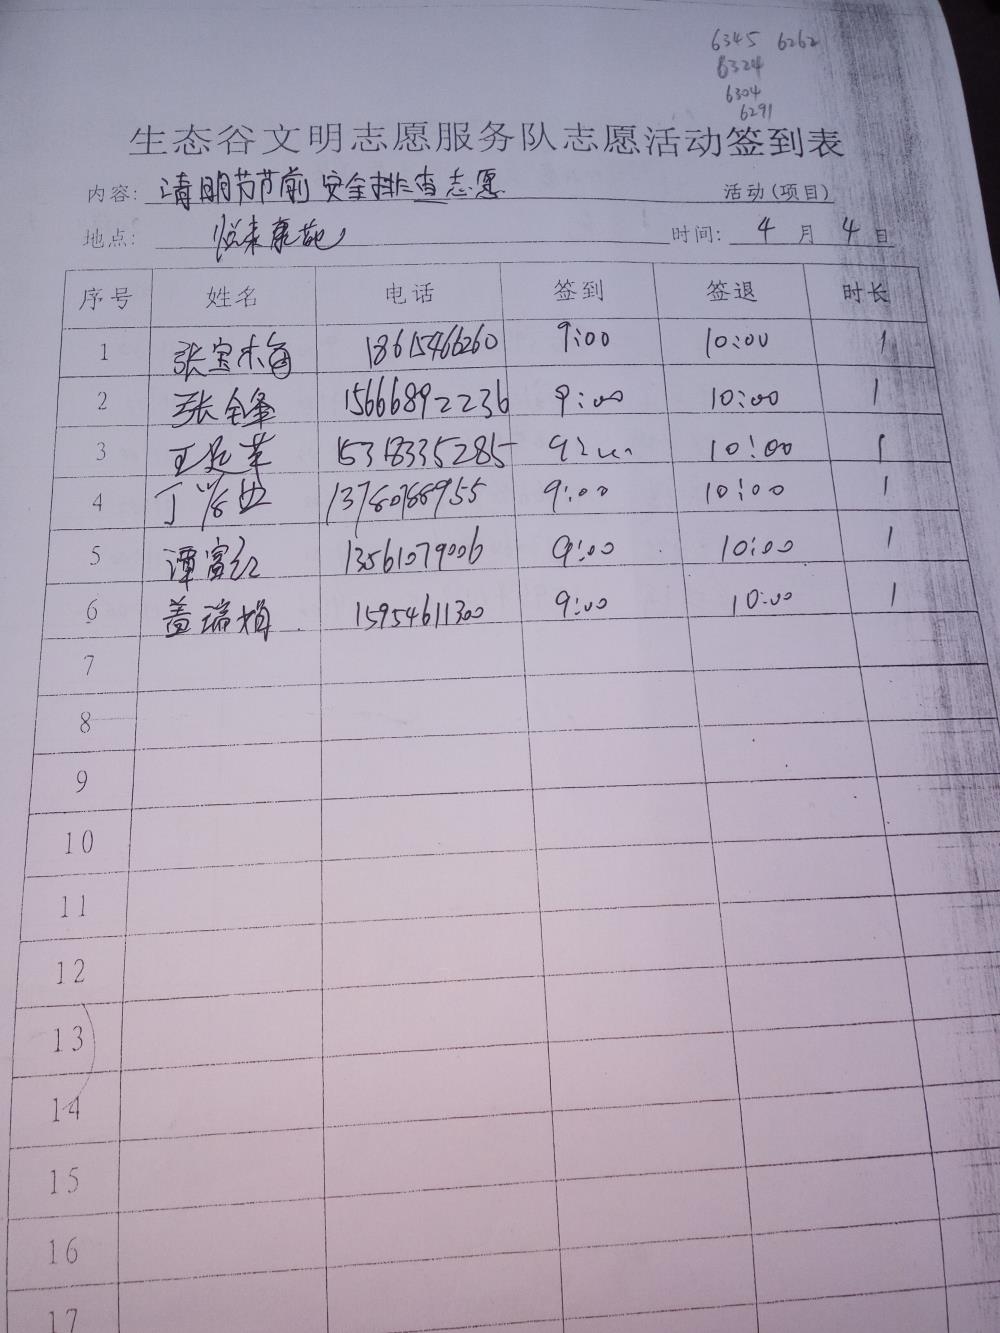 6345 6262
6324
6304
6291
生态谷文明志愿服务队志愿活动签到表
内容: 清明节节前安全排查志愿 活动(项目)
地点: 悦来康苑 时间: 4 月 4 日
序号 姓名 电话 签到 签退 时长
1 张宝梅 18615466260 9:00 10:00 1
2 张全峰 15666892236 9:00 10:00 1
3 15318335285 9:00 10:00 1
4 9:00 10:00 1
5 谭富红 13561079006 9:00 10:00 1
6 盖瑞娟 15954611300 9:00 10:00 1
7
8
9
10
11
12
13
14
15
16
17